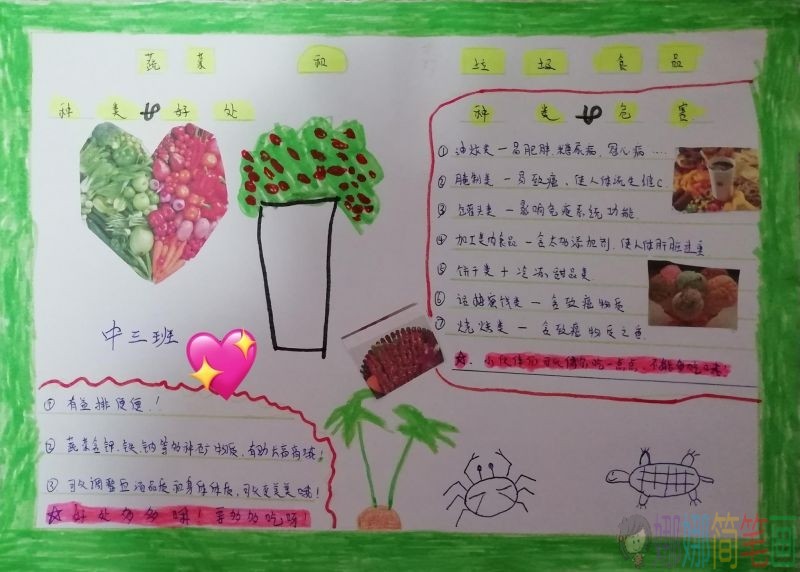 蔬菜 和 垃圾食品
种类&好处
种类&危害
① 油炸类一易肥胖.糖尿病、冠心病....
② 腌制类一易致癌、使人体流失维C.
③ 罐头类一影响免疫系统功能
④ 加工类肉食品一含太多添加剂,使人体肝脏过重
⑤ 饼干类+冷冻甜品类
⑥ 话梅蜜饯类一含致癌物质
⑦ 烧烤类一含致癌物质之重
☆. 小伙伴们可以偶尔吃一点点,不能多吃哦!
中三班
① 有益排便便!!
② 蔬菜含钾.铁.钠等多种矿物质,有助
③ 可以调整血液品质和身体体质,可以变美美哦!
☆ 好处多多哦!要多多吃呀!
娜娜简笔画